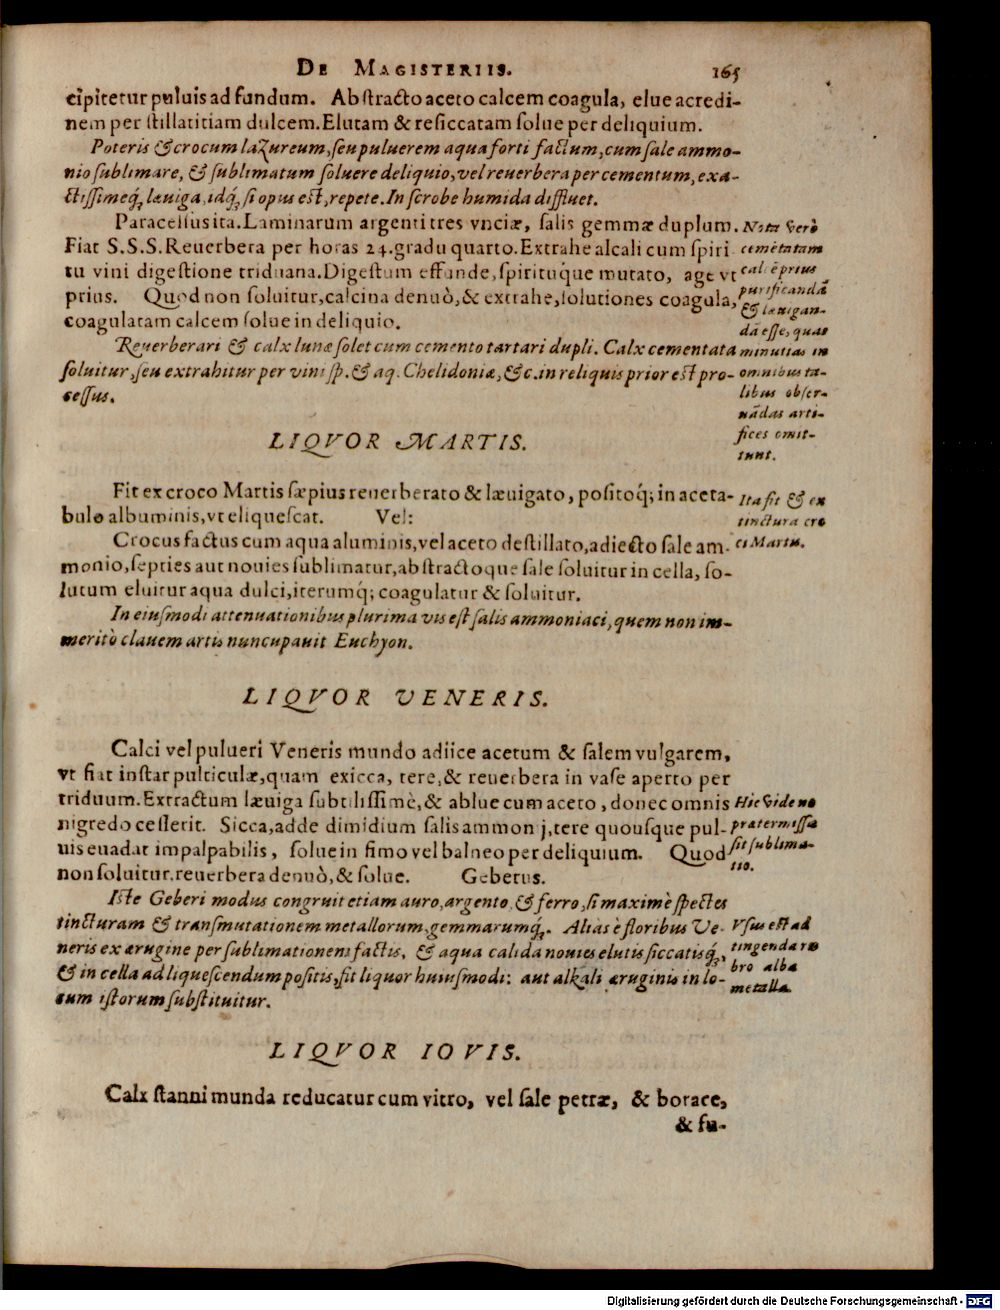 DE MAGISTERIIS. 165
cipitetur puluis ad fundum. Abstracto aceto calcem coagula, elue acredi-
nem per stillatitiam dulcem. Elutam & resiccatam solue per deliquium.
Poteris & crocum lazureum, seu puluerem aqua forti factum, cum sale ammo-
nio sublimare, & sublimatum soluere deliquio, vel reuerbera per cementum, exa-
ctissimeq́; læuiga, idq́; si opus est, repete. In scrobe humida diffluet.
Paracelsus ita. Laminarum argenti tres vnciæ, salis gemmæ duplum.
Fiat S.S.S. Reuerbera per horas 24. gradu quarto. Extrahe alcali cum spiri
tu vini digestione triduana. Digestum effunde, spirituque mutato, age vt
prius. Quod non soluitur, calcina denuò, & extrahe, solutiones coagula,
coagulatam calcem solue in deliquio.
Reuerberari & calx lunæ solet cum cemento tartari dupli. Calx cementata
soluitur, seu extrahitur per vini sp. & aq. Chelidoniæ, &c. in reliquis prior est pro-
cessus.
Nota verò
cemētatam
calcē prius
purificandā
& læuigan-
dā esse, quas
minutias in
omnibus ta-
libus obser-
uādas arti-
fices omit-
tunt.
LIQVOR MARTIS.
Fit ex croco Martis sæpius reuerberato & læuigato, positoq́; in aceta-
bulo albuminis, vt eliquescat. Vel:
Crocus factus cum aqua aluminis, vel aceto destillato, adiecto sale am-
monio, septies aut nouies sublimatur, abstractoque sale soluitur in cella, so-
lutum eluitur aqua dulci, iterumq́; coagulatur & soluitur.
In eiusmodi attenuationibus plurima vis est salis ammoniaci, quem non im-
meritò clauem artis nuncupauit Euchyon.
Ita fit & ex
tinctura cro
ci Martis.
LIQVOR VENERIS.
Calci vel pulueri Veneris mundo adiice acetum & salem vulgarem,
vt fiat instar pulticulæ, quam exicca, tere, & reuerbera in vase aperto per
triduum. Extractum læuiga subtilissimè, & ablue cum aceto, donec omnis
nigredo cesserit. Sicca, adde dimidium salis ammon j, tere quousque pul-
uis euadat impalpabilis, solue in fimo vel balneo per deliquium. Quod
non soluitur, reuerbera denuò, & solue. Geberus.
Iste Geberi modus congruit etiam auro, argento & ferro, si maximè spectes
tincturam & transmutationem metallorum, gemmarumq́;. Alias è floribus Ve-
neris ex ærugine per sublimationem factis, & aqua calida nouies elutis siccatisq́;,
& in cella ad liquescendum positis, fit liquor huiusmodi: aut alkali æruginis in lo-
cum istorum substituitur.
Hic vide ne
prætermissa
sit sublima-
tio.
Vsus est ad
tingenda ru
bro alba
metalla.
LIQVOR IOVIS.
Calx stanni munda reducatur cum vitro, vel sale petræ, & borace,
& fu-
Digitalisierung gefördert durch die Deutsche Forschungsgemeinschaft - DFG